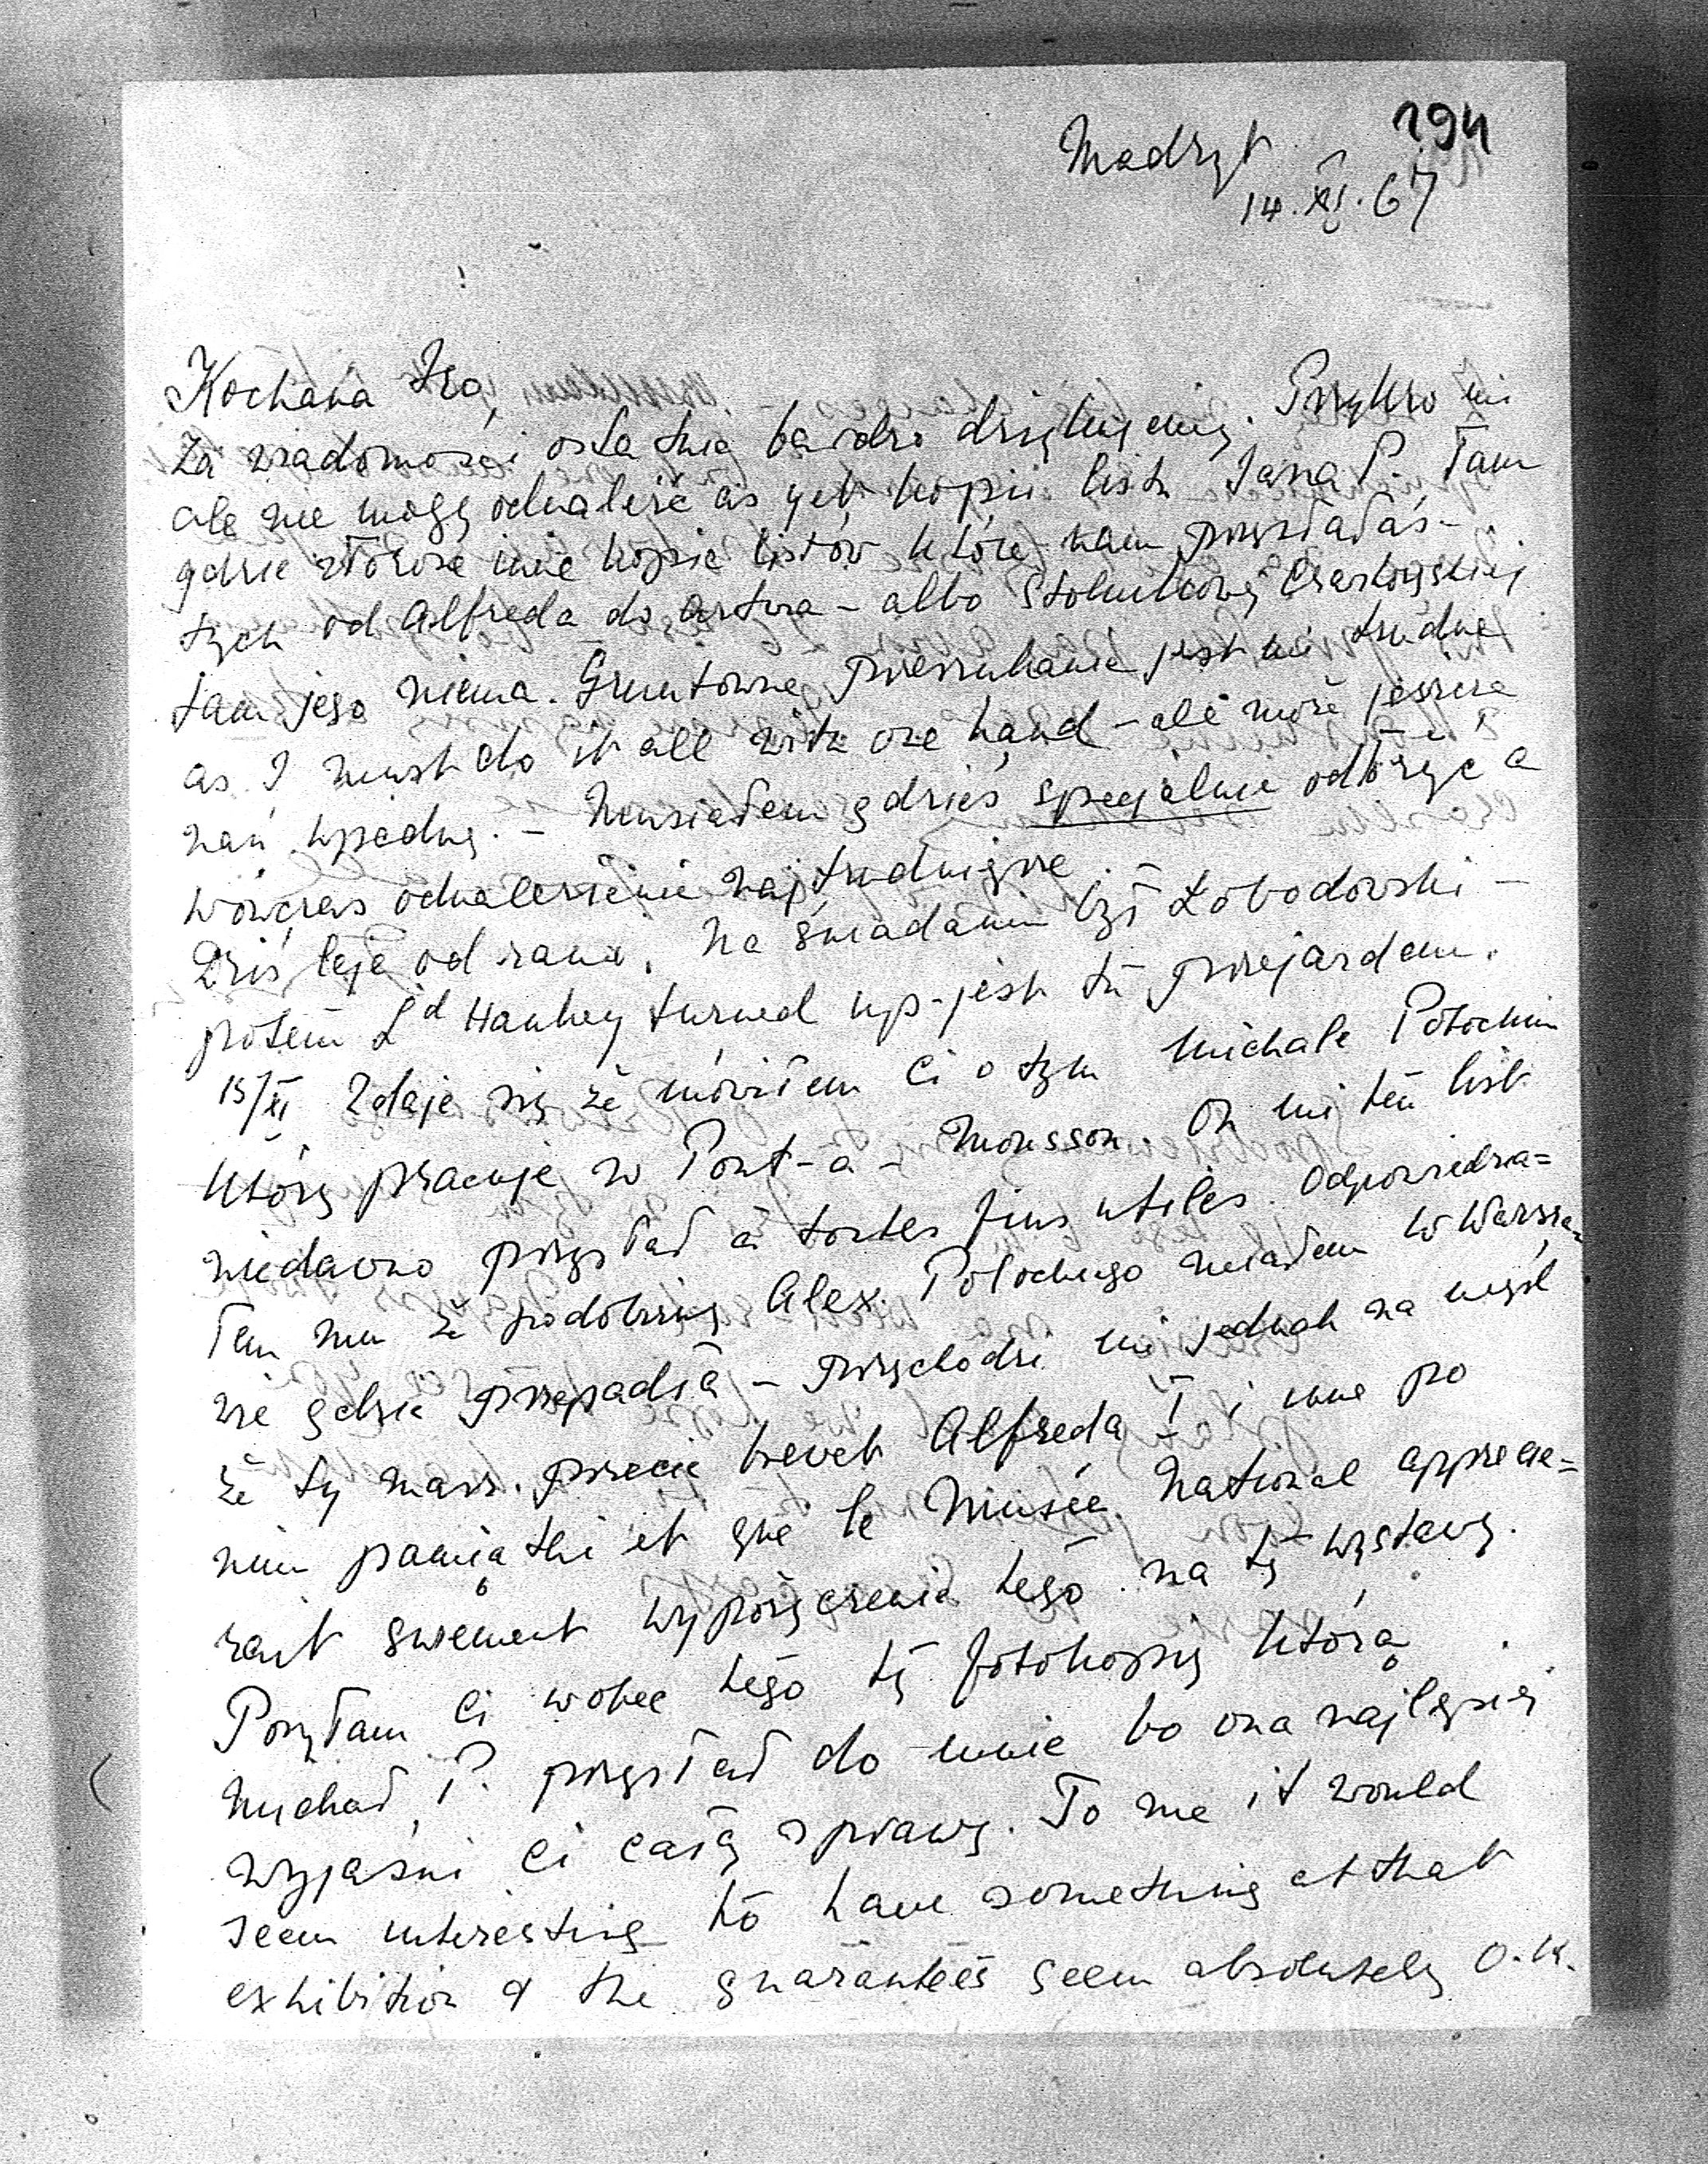 194
Madryt
14.XI.67
Kochana Iza,
Za wiadomości ostatnie bardzo dziękuję. Przykro mi
ale nie mogę odnaleść as yet kopii listu Jana P. Tam
gdzie złożone inne kopie listów które nam przysłałaś -
tych od Alfreda do Artura - albo Stolnikowej Czartoryskiej
tam jego niema. Gruntowne przeszukanie jest mi trudne
as I must do it all with one hand - ale może jeszcze
nań wpadnę. - Musiałem gdzieś specjalnie odłożyć a
wówczas odnalezienie najtrudniejsze.
Dziś leje od rana. Na śniadaniu był Łobodowski -
potem Ld Hankey turned up - jest tu przejazdem.
15/XI Zdaje się że mówiłem Ci o tym Michale Potockim
który pracuje w Pont-a-Mousson. On mi ten list
niedawno przysłał à toutes fins utiles. Odpowiedzia=
łem mu że podobiznę Alex. Potockiego miałem w Warsza=
wie gdzie przepadła - przychodzi mi jednak na myśl
że Ty masz przecie brevet Alfreda I i inne po
nim pamiątki et que le Musée National apprécie=
rait vivement wypożyczenie tego na tę wystawę.
Posyłam Ci wobec tego tę fotokopię którą
Michał P. przysłał do mnie bo ona najlepiej
wyjaśni Ci całą sprawę. To me it would
seem interesting to have something at that
exhibition & the guarantees seem absolutely O.K.